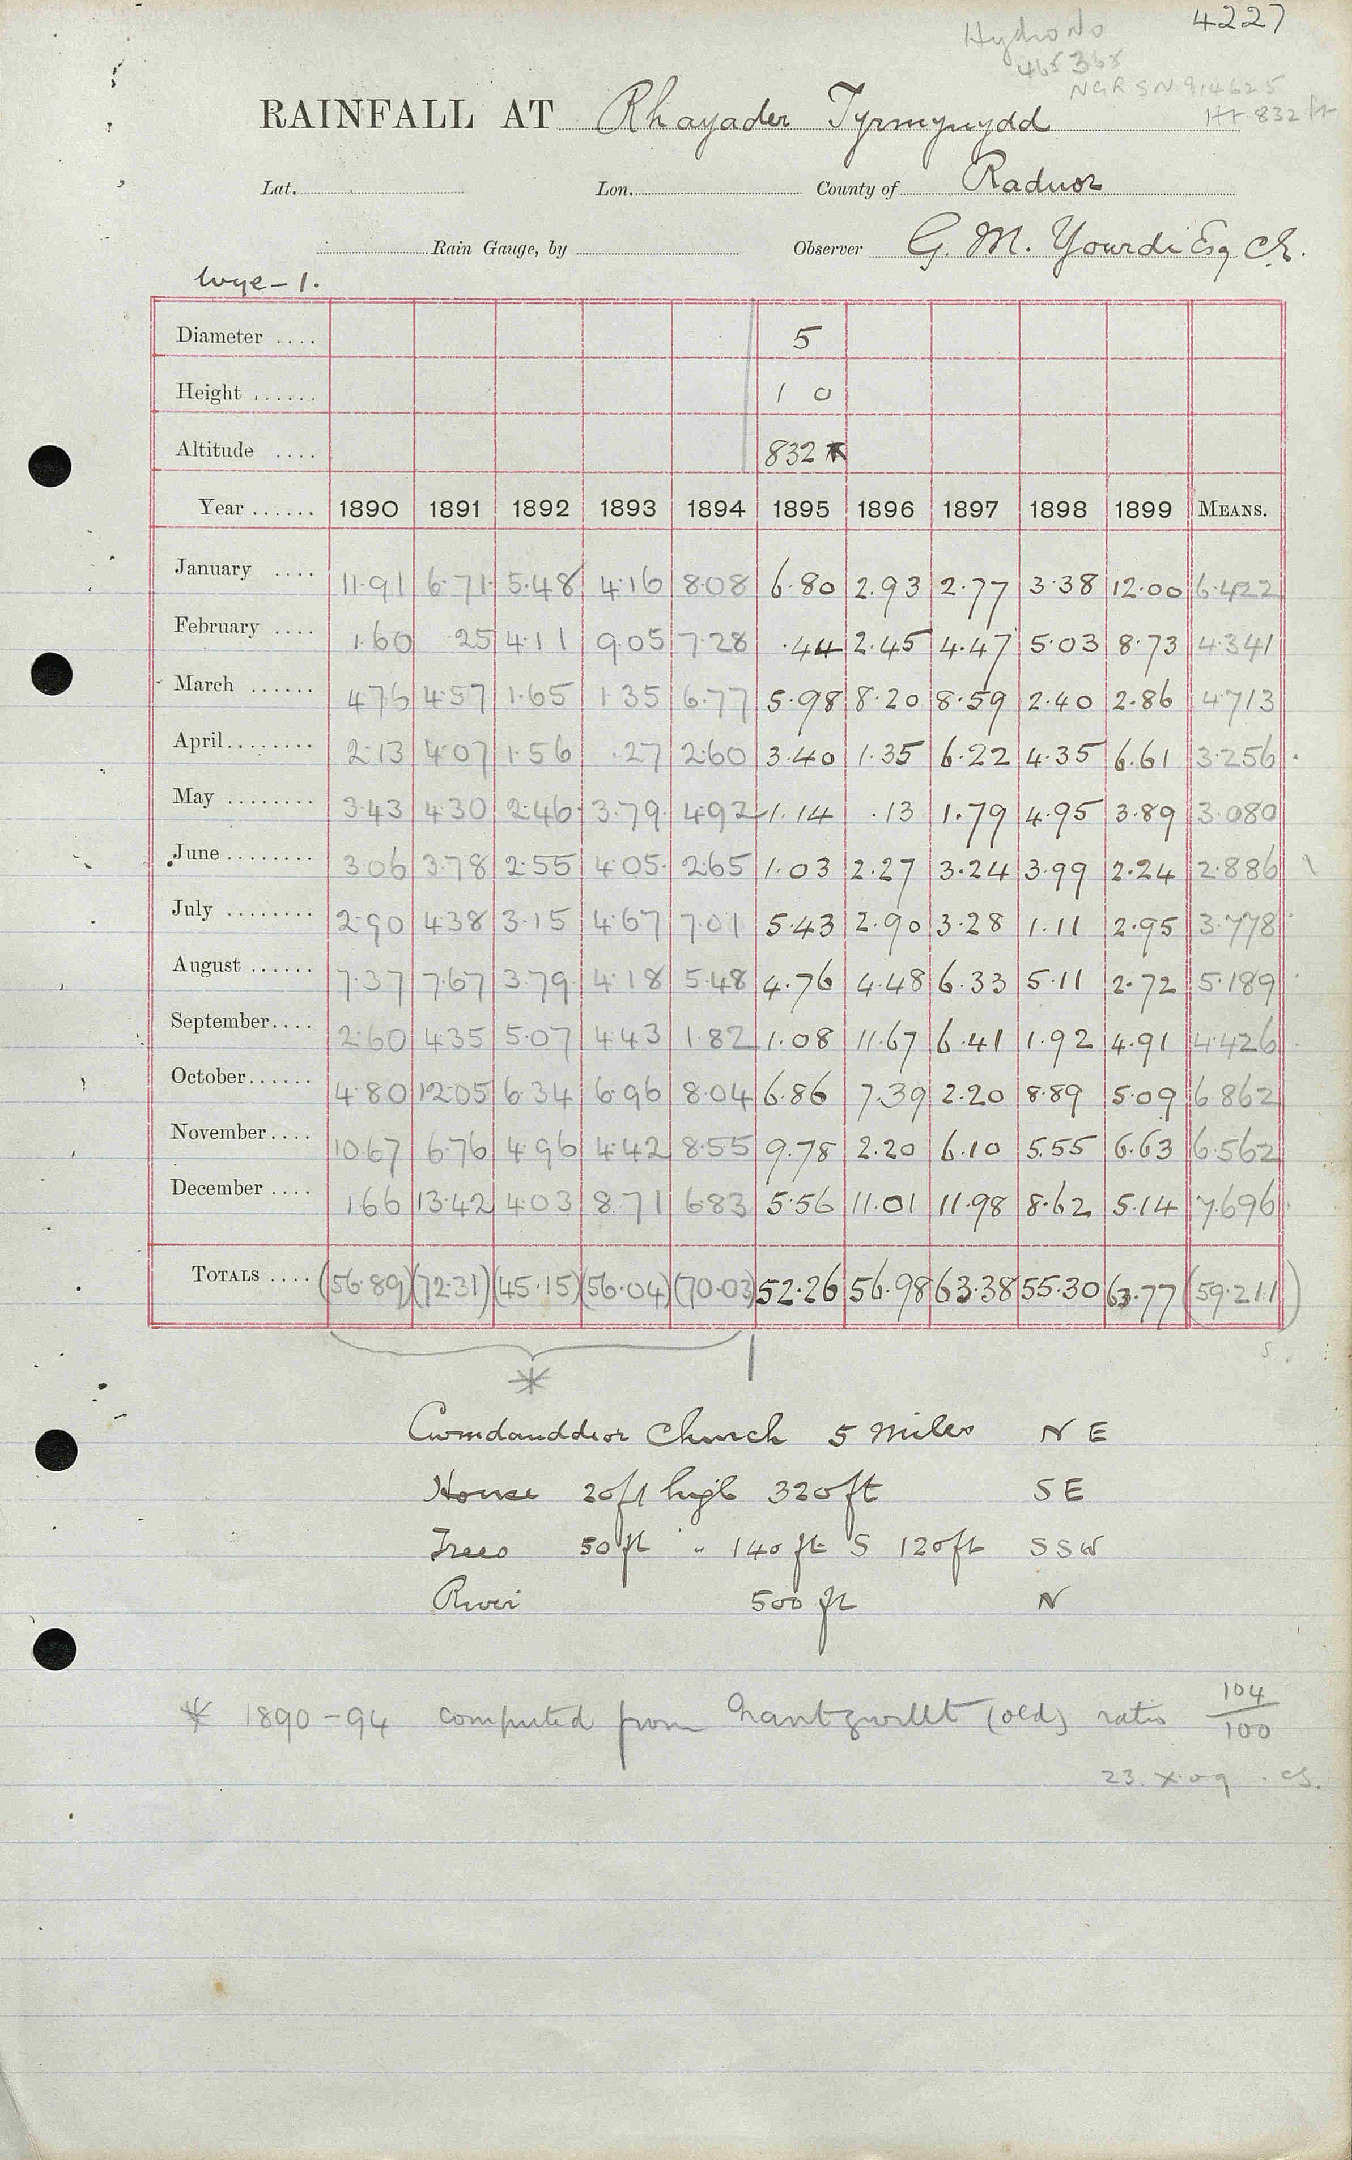 4227
Hydro No
465368
NGR SN 914625
Ht 832 ft
RAINFALL AT Rhayader Tyrmynydd
Lat. Lon. County of Radnor
Rain Gauge, by Observer G. M. Yourdi Esq C.E.
Wye - 1.
Diameter .... 5
Height ...... 1 0
Altitude .... 832
Year ...... 1890 1891 1892 1893 1894 1895 1896 1897 1898 1899 MEANS.
January .... 11.91 6.71 5.48 4.16 8.08 6.80 2.93 2.77 3.38 12.00 6.422
February .... 1.60 .25 4.11 9.05 7.28 .44 2.45 4.47 5.03 8.73 4.341
March ...... 4.76 4.57 1.65 1.35 6.77 5.98 8.20 8.59 2.40 2.86 4.713
April........ 2.13 4.07 1.56 .27 2.60 3.40 1.35 6.22 4.35 6.61 3.256
May ........ 3.43 4.30 2.46 3.79 4.92 1.14 .13 1.79 4.95 3.89 3.080
June ........ 3.06 3.78 2.55 4.05 2.65 1.03 2.27 3.24 3.99 2.24 2.886
July ........ 2.90 4.38 3.15 4.67 7.01 5.43 2.90 3.28 1.11 2.95 3.778
August ...... 7.37 7.67 3.79 4.18 5.48 4.76 4.48 6.33 5.11 2.72 5.189
September.... 2.60 4.35 5.07 4.43 1.82 1.08 11.67 6.41 1.92 4.91 4.426
October...... 4.80 12.05 6.34 6.96 8.04 6.86 7.39 2.20 8.89 5.09 6.862
November.... 10.67 6.76 4.96 4.42 8.55 9.78 2.20 6.10 5.55 6.63 6.562
December .... 1.66 13.42 4.03 8.71 6.83 5.56 11.01 11.98 8.62 5.14 7.696
TOTALS .... (56.89) (72.31) (45.15) (56.04) (70.03) 52.26 56.98 63.38 55.30 63.77 (59.211)
s.
*
Cwmdauddwr Church 5 Miles N E
House 20ft high 320ft S E
Trees 50ft " 140 ft S 120ft S S W
River 500 ft N
* 1890-94 computed from Nantgwillt (old) ratio 104/100
23. X. 09. CS.